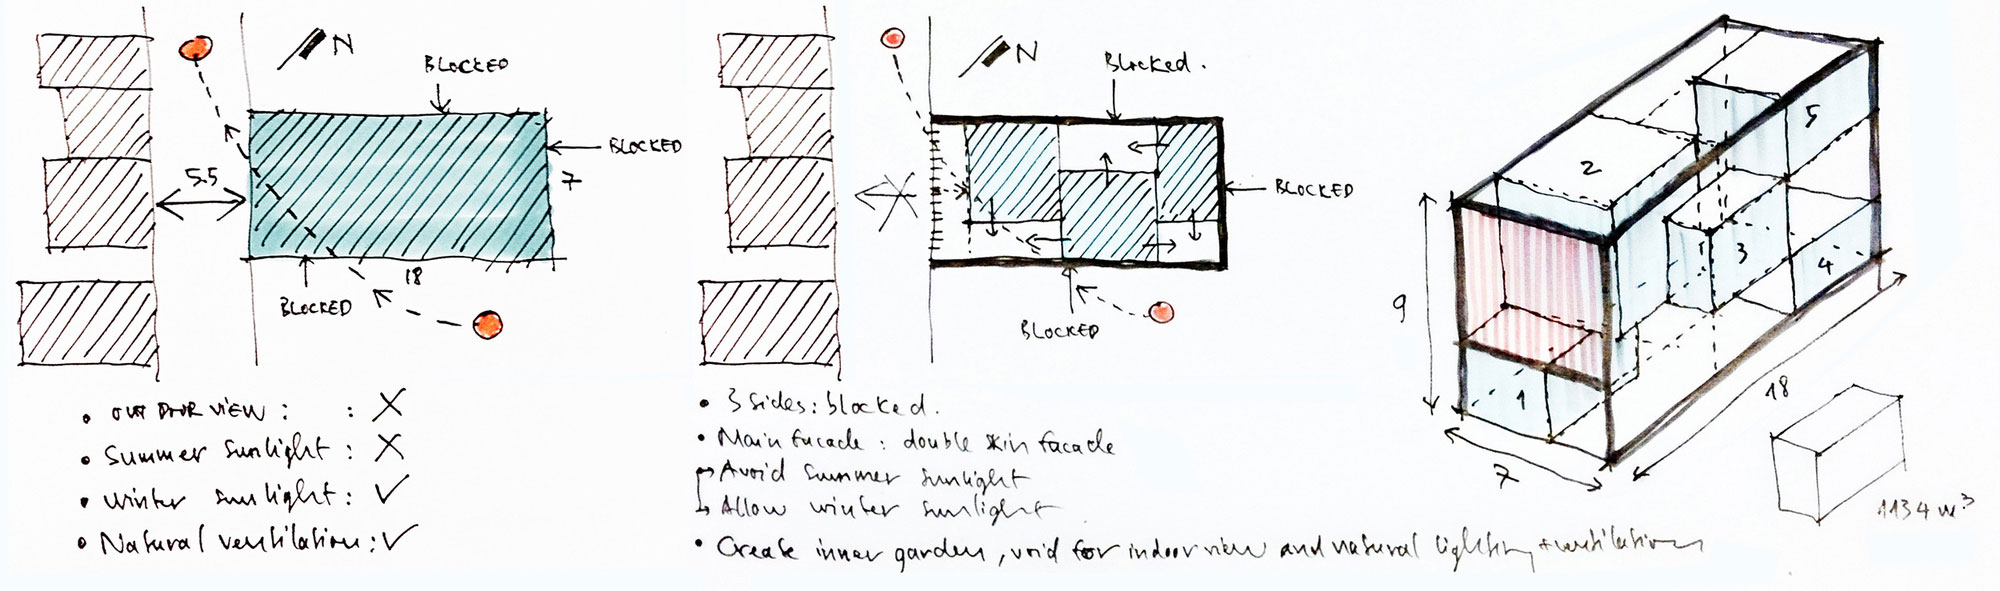 N
BLOCKED
BLOCKED
5.5
7
18
BLOCKED
• OUT DOOR VIEW : : X
• Summer sunlight : X
• winter sunlight : ✓
• Natural ventilation : ✓
N
Blocked.
BLOCKED
BLOCKED
• 3 sides : blocked.
• Main facade : double skin facade
→ Avoid summer sunlight
↳ Allow winter sunlight
• Create inner garden, void for indoor view and natural lighting + ventilation
5
2
3
4
9
1
18
7
1134 m³